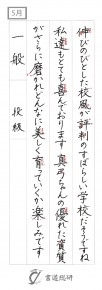 5月
伸びのびとした校風が評判のすばらしい学校だそうですね
私達もとても喜んでおります 真弓さんの優れた資質
がさらに磨かれどんなに美しく育っていくか楽しみです
一般 段級
書道総研